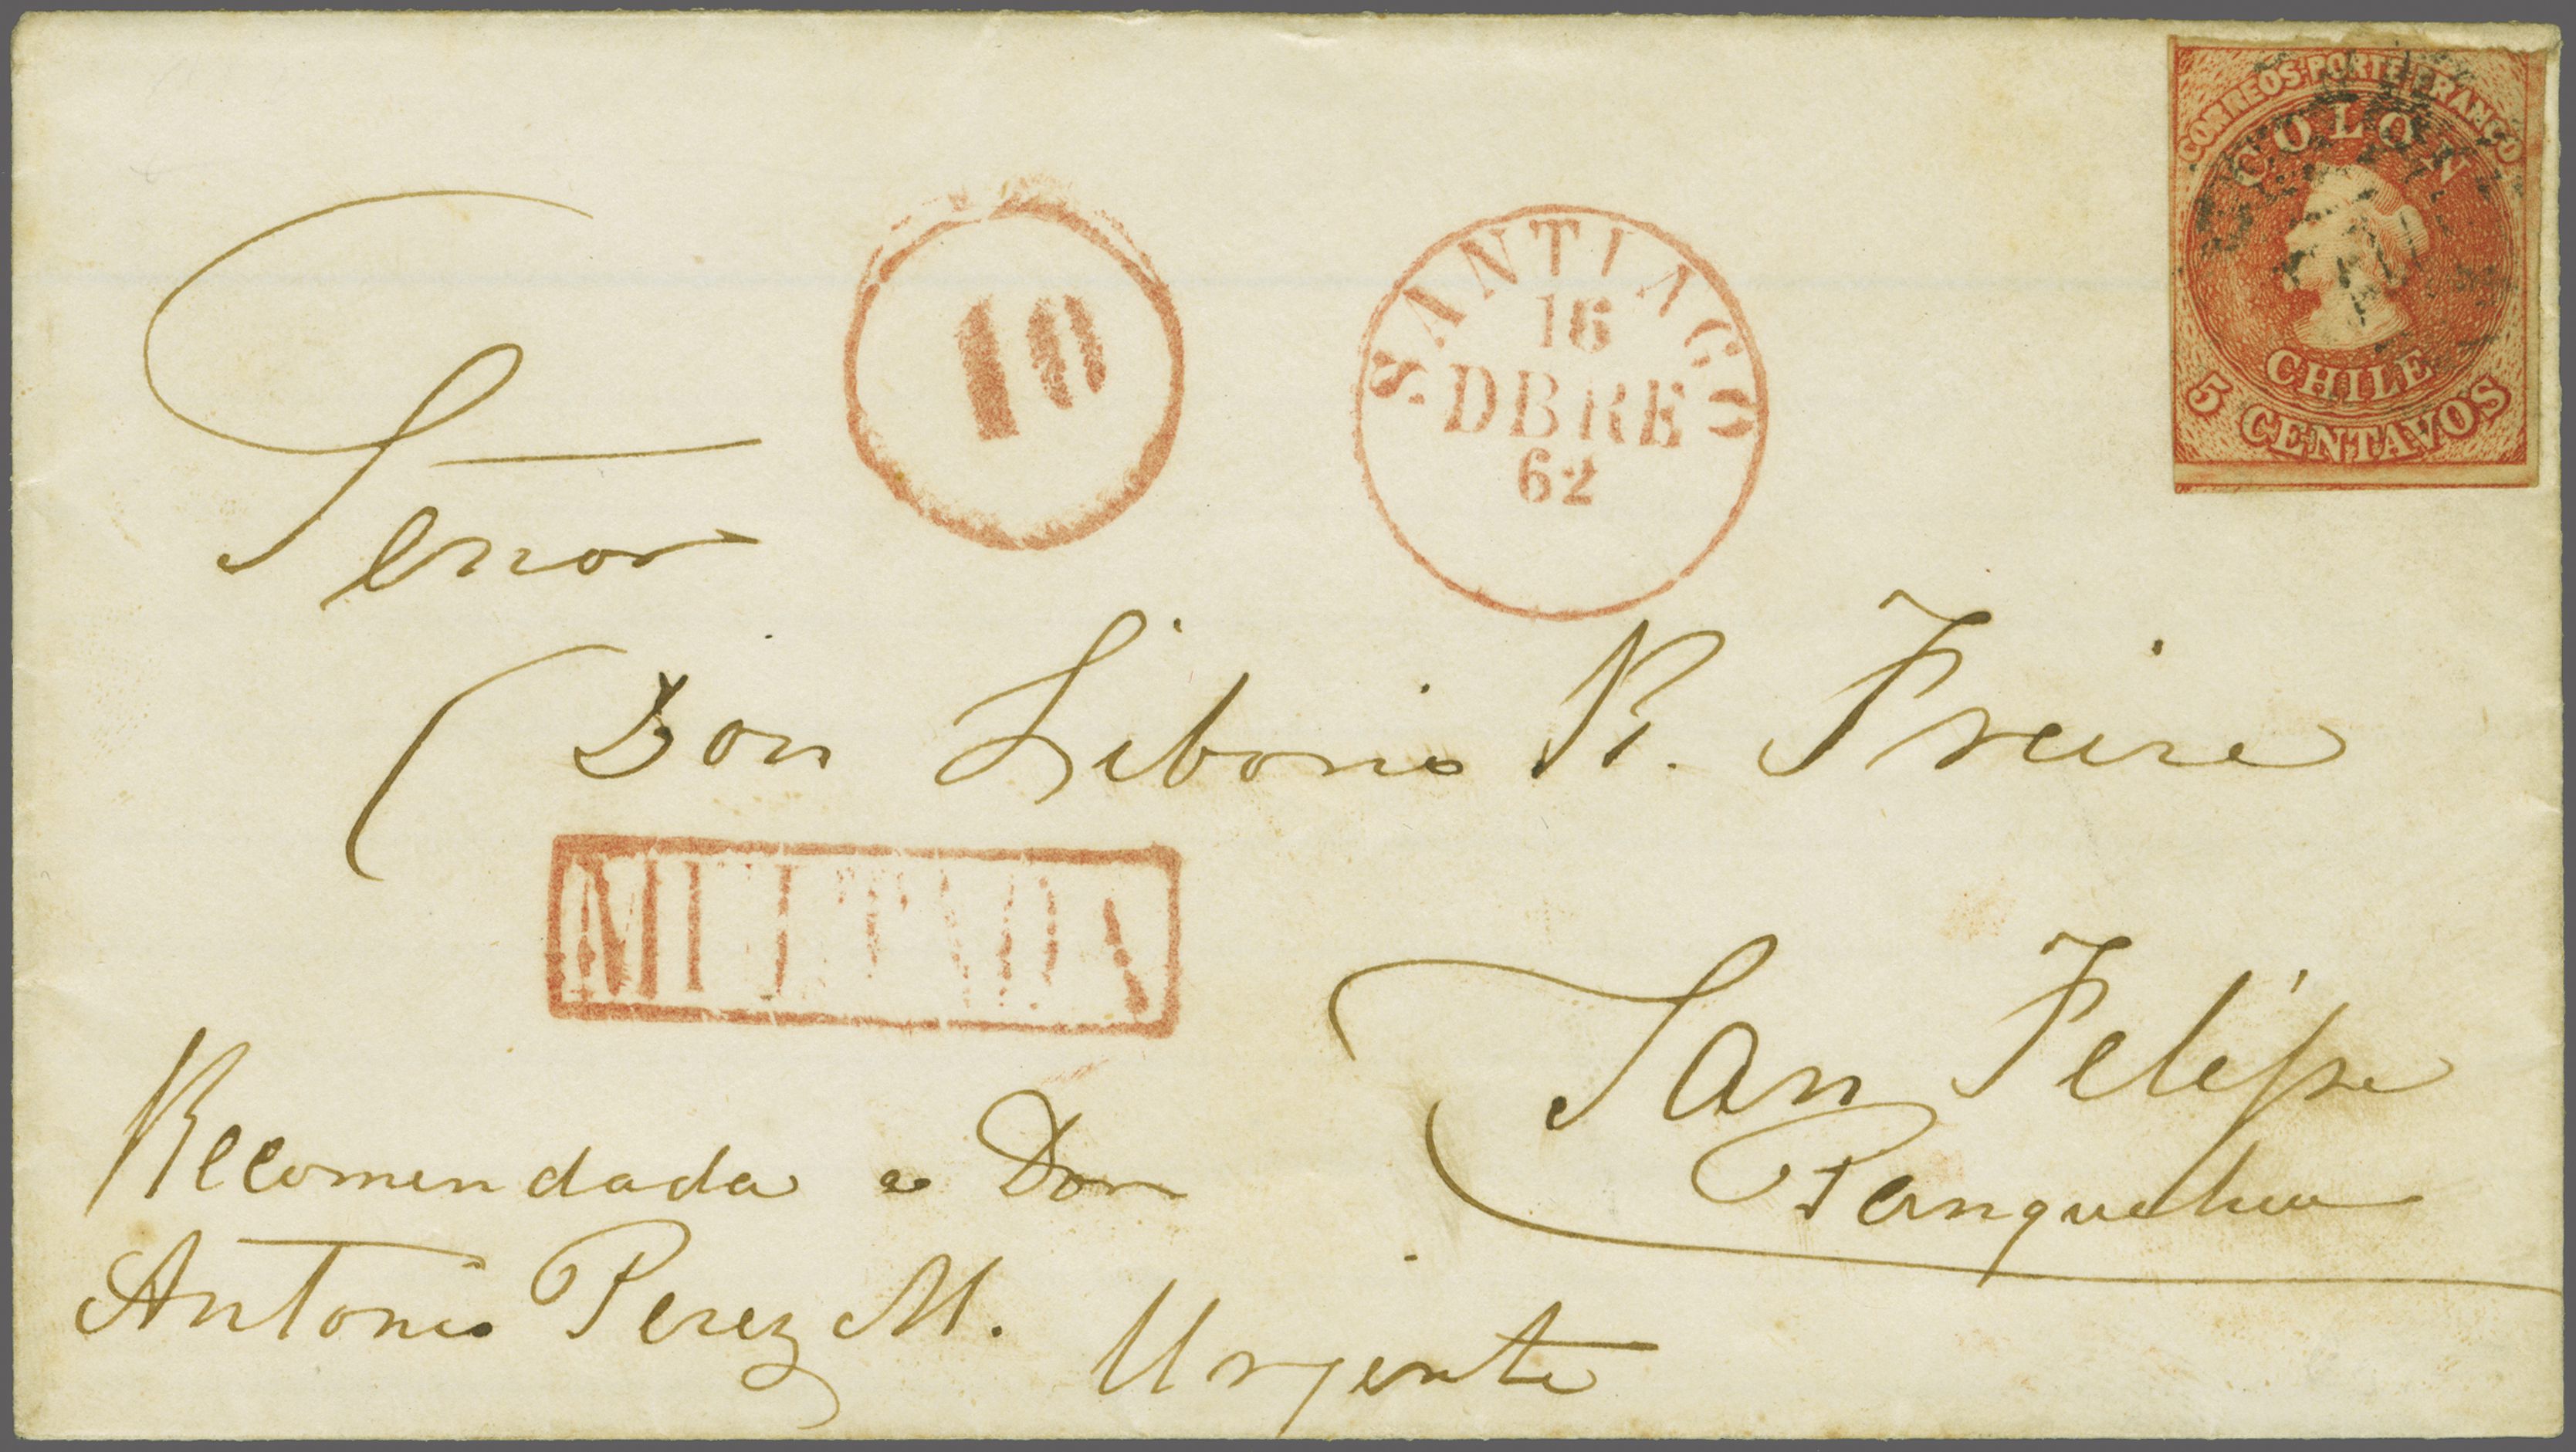 CORREOS PORTE FRANCO
COLON
CHILE
5 CENTAVOS
10
SANTIAGO
16
DBRE
62
Señor
Don Liborio R. Freire
MULTADA
San Felipe
Panquehue
Recomendada a Don
Antonio Perez M.
Urjente